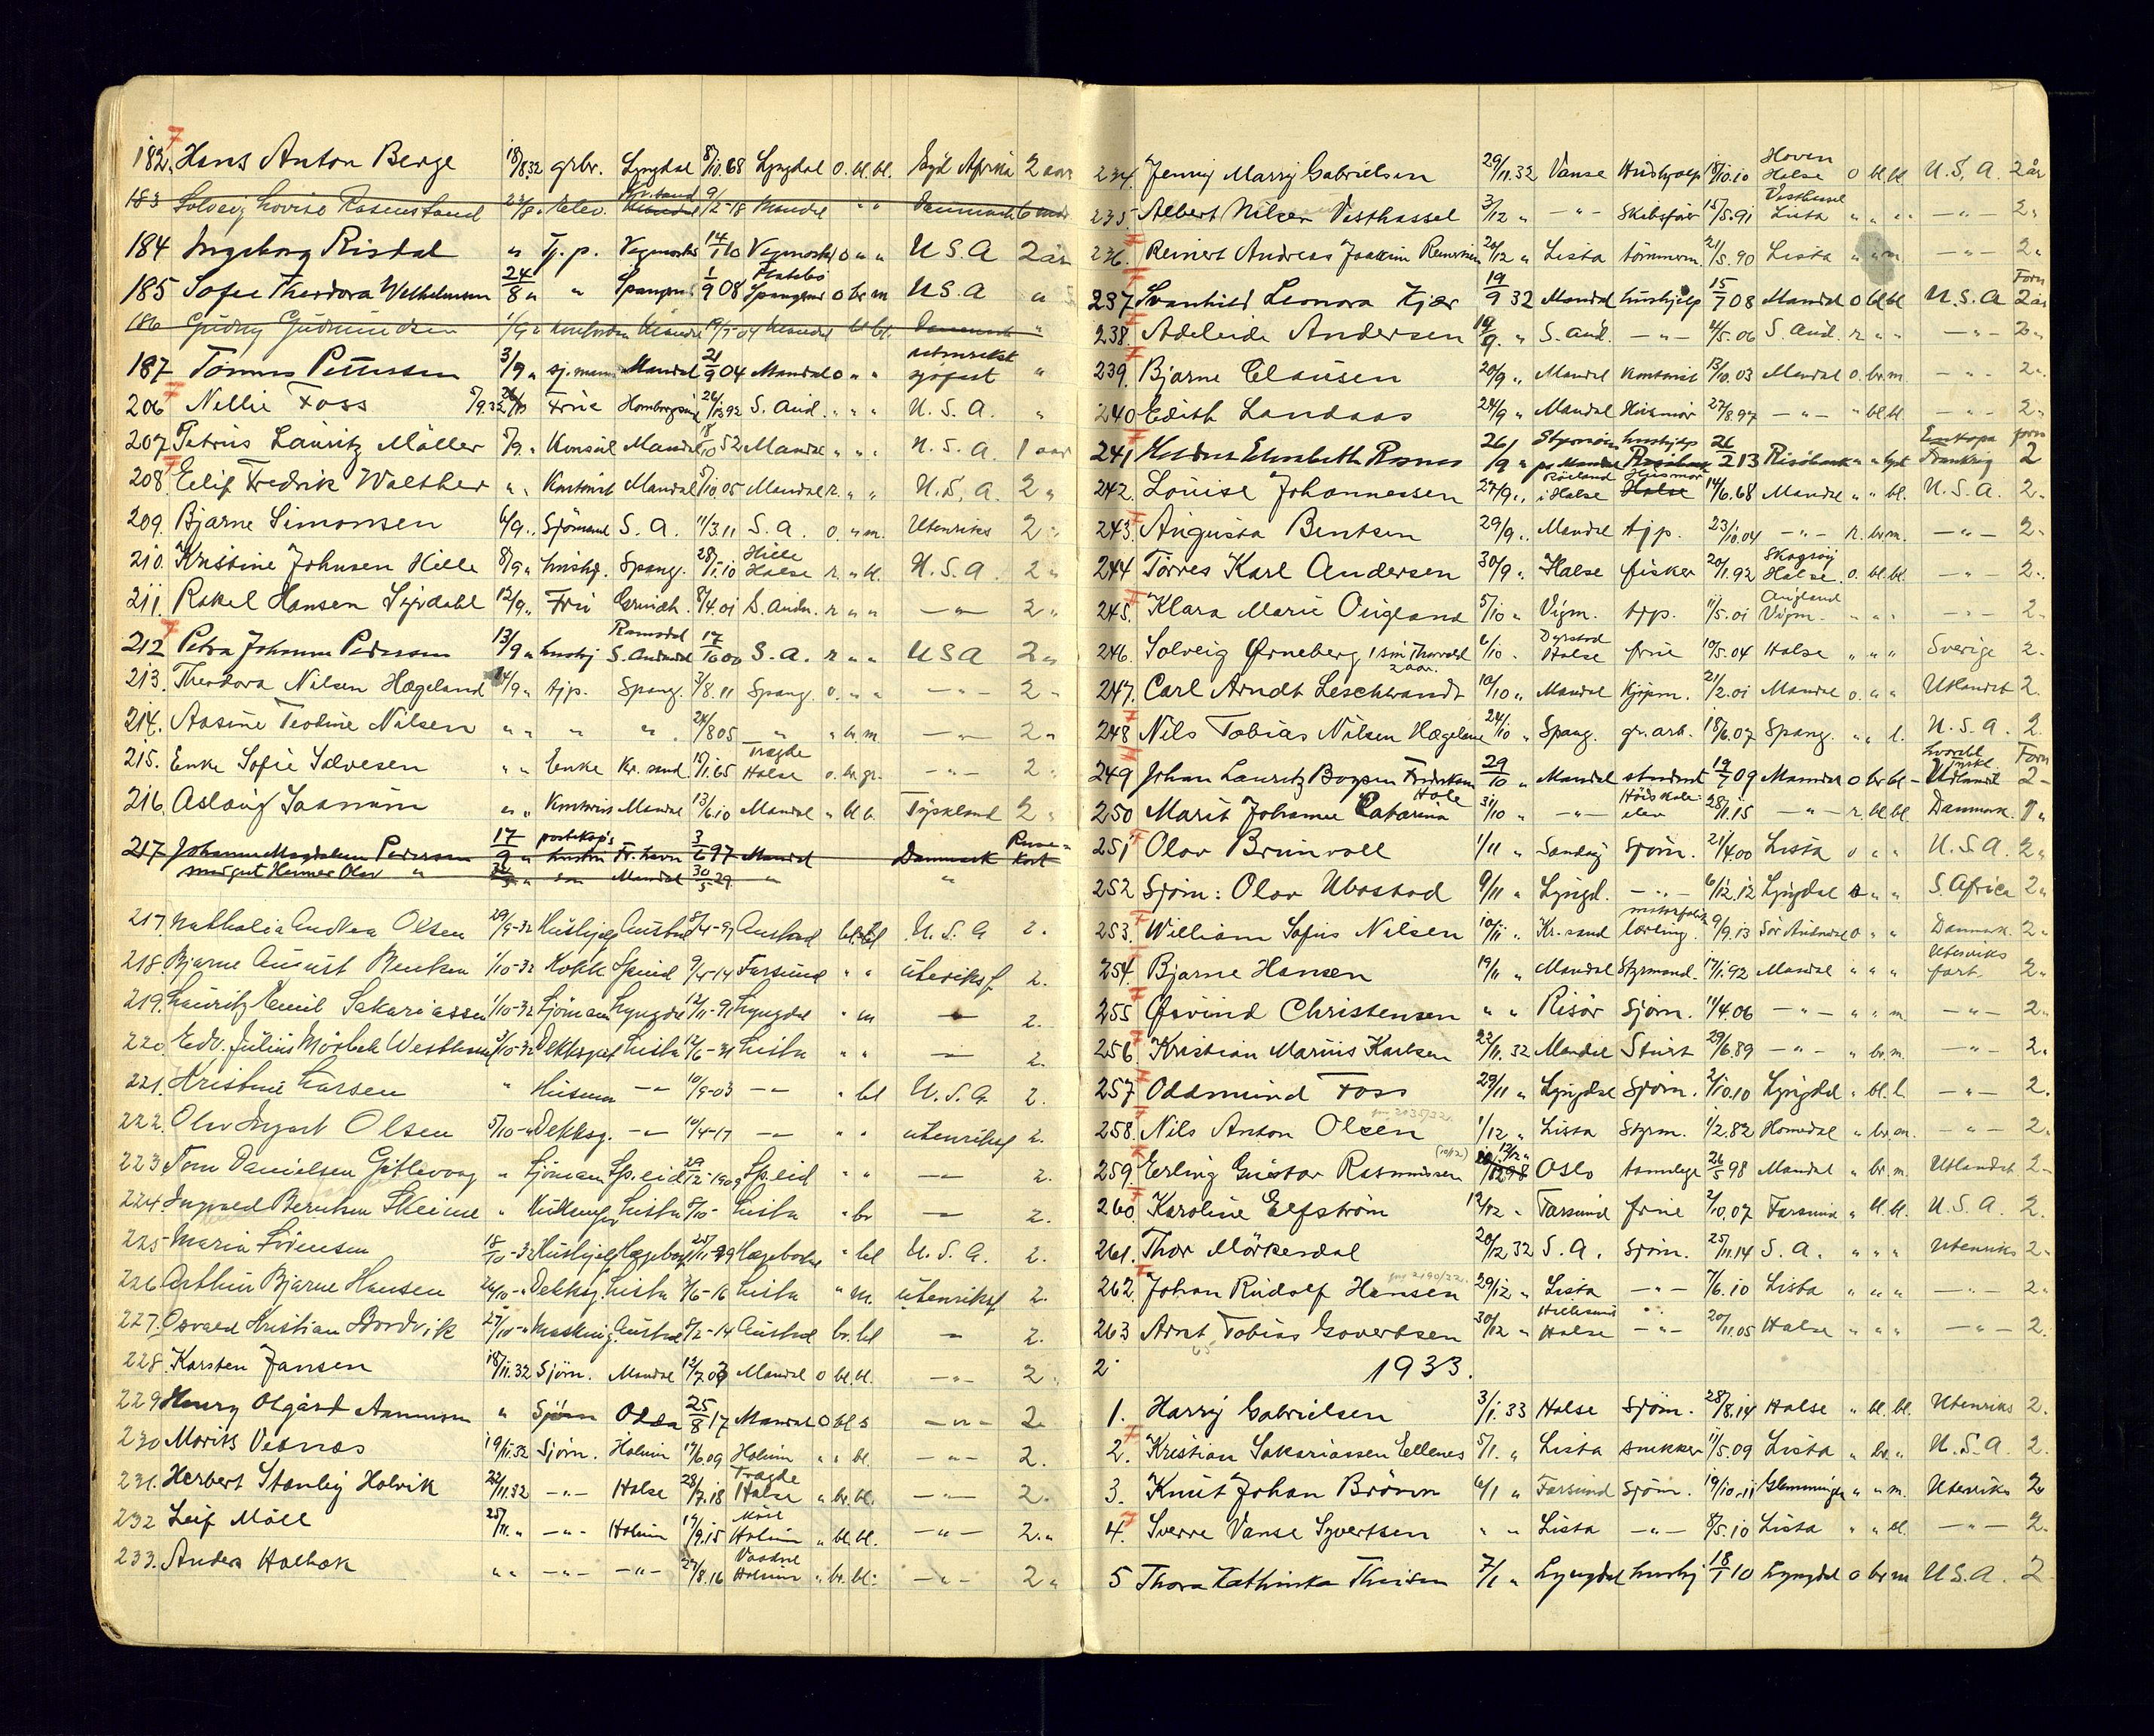 182. Hans Anton Berge 18/8.32 grbr. Lyngdal 8/10.68 Lyngdal o. bl. bl. Syd Afrika 2 aar
183 Solveig Lovise Rosenstand 23/8 " Elev. Kr.sand 9/2-18 Mandal " " Danmark 6 mdr
184 Ingeborg Risdal " Tj. p. 14/1 10 o " " U S A 2 år
185 Sofie Theodora Wilhelmsen 24/8 " " 1/9 08 o br m U S A "
186 Gudny Gudmundsen 1/9 " Mandal bl bl. Danmark "
187 Tomas Pettersen 3/9 " sj.mann Mandal 21/9 04 Mandal o " " utenriksk sjöfart "
206 Nellie Foss 5/9.32 Frue 26/12 92 S. Aud. " " " U. S. A. "
207 Petrus Lauritz Möller 5/9. " Konsul Mandal 18/10 52 Mandal " " " U. S. A. 1 aar
208. Eilif Fredrik Walther " " Kontorist Mandal 5/10.05 Mandal r. " " U. S. A. 2 "
209. Bjarne Simonsen 6/9. " Sjömand S. A. 11/3.11 S. a. o. " m. Utenriks 2 "
210. Kristine Johnsen Hille 8/9 " hushj. Spang. 28/1.10 Hille Halse r. " bl. U. S. A. 2 "
211. Rakel Hansen Sirdahl 12/9. " Fru 8/4.01 S. Audn. r " " — " — 2 "
212 Petra Johanne Pedersen 13/9 " hushj Ramsdal S. Audnedal 17/10 00 S. A. r " " U S A 2 "
213. Theodora Nilsen Hægeland 14/9 " tjp. Spang. 3/8.11 Spang. o. " " — " — 2 "
214. Aasine Teodine Nilsen " " " " 24/8 05 — " — " br. m — " — 2 "
215. Enke Sofie Salvesen " " Enke Kr. sand. 15/11.65 Tregde Halse o. br. gr. — " — 2 "
216. Aslaug Saanum " " Kontorist Mandal 13/6.10 Mandal " bl. b. Tyskland 2 "
217 Johanne Magdalene Pedersen 17/9 " Fr. havn 3/6 97 Mandal Danmark Reisekort
Henner Olav " " søn Mandal 30/5-29 " "
217. Nathalia Andrea Olsen 29/9-32 Hushjelp Austad 8/4-97 Austad bl. bl U. S. A 2.
218. Bjarne August Bentsen 1/10-32 Kokk Spind 9/4-14 Farsund " " utenriksf 2.
219. Lauritz Emil Sakariassen 1/10-32 Sjömann Lyngdal 12/11-91 Lyngdal " m — " — 2.
220. Edv. Julius 3/10-32 Dekksgut Lista 12/6-31 Lista " " — " — 2.
221. Kristine Larsen " Husmor — " — 10/9-03 — " — " bl U. S. A. 2.
222. Olav Ingvart Olsen 5/10-" Dekksg. — " — 10/4-17 — " — " " utenriksf 2.
223 Tom Danielsen Gitlevaag " Sjömann Sp.eid 29/12-1909 Sp.eid " " — " — 2.
224. Ingvald Berntsen Skeime " Lista Lista " br — " — 2.
225. Maria Sörensen 18/10-32 Hushjelp Hægebost Hægebostad " bl U. S. A. 2.
226 Arthur Bjarne Hansen 24/10-" Dekksg. Lista 3/6-16 Lista " m. utenriksf 2.
227. Osvald Kristian Bordvik 25/10-" Austad 8/2-14 Austad br. bl — " — 2.
228. Karsten Jansen 18/11.32 Sjöm. Mandal 12/7.03 Mandal o bl. bl. — " — 2 "
229 Henry Olgård Aanonsen " Sjöm 25/8 17 Mandal o bl s — " — 2
230 Moriks Vesnæs 19/11.32 Sjöm. Holum 17/6.09 Holum " " bl. — " — 2.
231. Herbert Stanley Holvik 22/11.32 — " — Halse 28/7.18 Tregde Halse " br. bl. — " — 2.
232 Leif Möll 25/11. " — " — Holum 14/9.15 Möll Holum " bl. bl. — " — 2. "
233. Anders Holbæk " " — " — — " — 27/8.16 Holum " br. bl. — " — 2 "
234. Jenny Marry Gabrielsen 29/11.32 Vanse Hushjelp 18/10.10 Hoven Halse o bl. bl. U. S. A. 2 år
235. Albert Nilsen Vesthassel 3/12 " — " — Skibsfør 15/5.91 Vesthassel Lista " " " — " — 2 "
236. Reinert Andreas Joakim Reinertsen 20/12 " Lista tömmerm. 21/5.90 Lista " " m — " — 2 "
237. Svanhild Leonora Kjær 19/9 32 Mandal hushjelp 15/7 08 Mandal o bl bl U. S. A Forn 2 år
238. Adeleide Andersen 19/9. " S. Aud. — " — 4/5.06 S. Aud. r " " — " — 2 "
239. Bjarne Clausen 20/9 " Mandal Kontorist 13/10.03 Mandal o. br. m. — " — 2 "
240 Edith Landaas 24/9 " Mandal Husmor 27/8.97 — " — " bl. bl. — " — 2 "
241 Elisabeth Risnes 26/9 " hushjelp 26/2 13 Risöbank " " Europa Frankrig forn 2
242. Louise Johannessen 27/9. " i Halse Husmor Halse 14/6.68 Mandal " " bl. U. S. A. 2 "
243. Augusta Bentsen 29/9. " Mandal tjp. 23/10.04 — " — r. br. m. — " — 2 "
244 Torres Karl Andersen 30/9 " Halse fisker 20/1.92 Skogsöy Halse. o. bl. bl. — " — 2 "
245. Klara Marie Ougland 5/10 " Vigm. tjp. 11/5.01 Ougland Vigm. " " " — " — 2
246. Solveig Ørneberg, 1 sön Thorvald 2 aar. 6/10 " Dyrstad Halse frue 10/5.04 Halse " " " Sverige 2 "
247. Carl Arndt Leschbrandt 10/10 " Mandal Kjöpm. 21/2.01 Mandal o. " " Utlandet 2.
248 Nils Tobias Nilsen Hægeland 24/10 " Spang. gr. arb. 18/6.07 Spang. " " l. U. S. A. 2
249 Johan Lauritz Boysen Fredriksen 29/10 " Mandal student 19/7 09 Mandal o br bl — Utlandet Forn 2 —
250 Marit Johanne Catarina Hole 31/10 " — " — elev 28/1.15 — " — r. bl. bl. Danmark. 1 "
251 Olav Brunvoll 1/11 " Sjöm. 21/4.00 Lista o " " U. S. A. 2 "
252 Sjöm: Olav Ubostad 9/11 " Lyngd. — " — 6/12.12 Lyngdal " " S. Africa 2 "
253. William Sofus Nilsen 10/11 " Kr. sand lærling. 9/9.13 Sör Audnedal o " " Danmark. 2 "
254. Bjarne Hansen 19/11 " Mandal Styrmand. 17/1.92 Mandal " " " Utenriks fart. 2 "
255 Øivind Christensen " " Risör Sjöm. 11/4.06 — " — " " m. — " — 2 "
256. Kristian Marius Karlsen 22/11.32 Mandal Stuert 29/6.89 — " — " br. m. — " — 2.
257. Oddmund Foss 29/11 " Lyngdal Sjöm. 2/10.10 Lyngdal " bl. l. — " — 2.
258. Nils Anton Olsen 1/12 " Lista Styrm. 1/2.82 Homedal " br. m. — " — 2.
259. Erling Gustav Rasmussen (10/12) 12/12 " Oslo tannlege 26/5 98 Mandal " br. m. Utlandet 2 —
260. Karoline Elfström 12/12 " Farsund frue 2/10.07 Farsund " bl. bl. U. S. A. 2.
261. Thor Mörkesdal 20/12 32 S. A. Sjöm. 25/11.14 S. A. " " " Utenriks 2 "
262. Johan Rudolf Hansen 29/12 " Lista — " — 7/6.10 Lista " " " — " — 2.
263 Arnt Tobias Govertsen 30/12 " Halse — " — 20/11.05 Halse " " " — " — 2.
2
1933.
1. Harry Gabrielsen 3/1.33 Halse Sjöm. 28/8.14 Halse " bl. bl. Utenriks 2.
2. Kristian Sakariassen Ellenes 5/1. " Lista snekker 11/5.09 Lista " br. " U. S. A. 2.
3. Knut Johan Brönn 6/1 " Farsund Sjöm. 19/10.11 " " m. Utenriks 2 "
4. Sverre Vanse Syvertsen " " Lista — " — 8/5.10 Lista " " bl. — " — 2.
5 Thora Kathinka Theisen 7/1 " Lyngdal hushj 18/1 10 Lyngdal o br m U S. A. 2